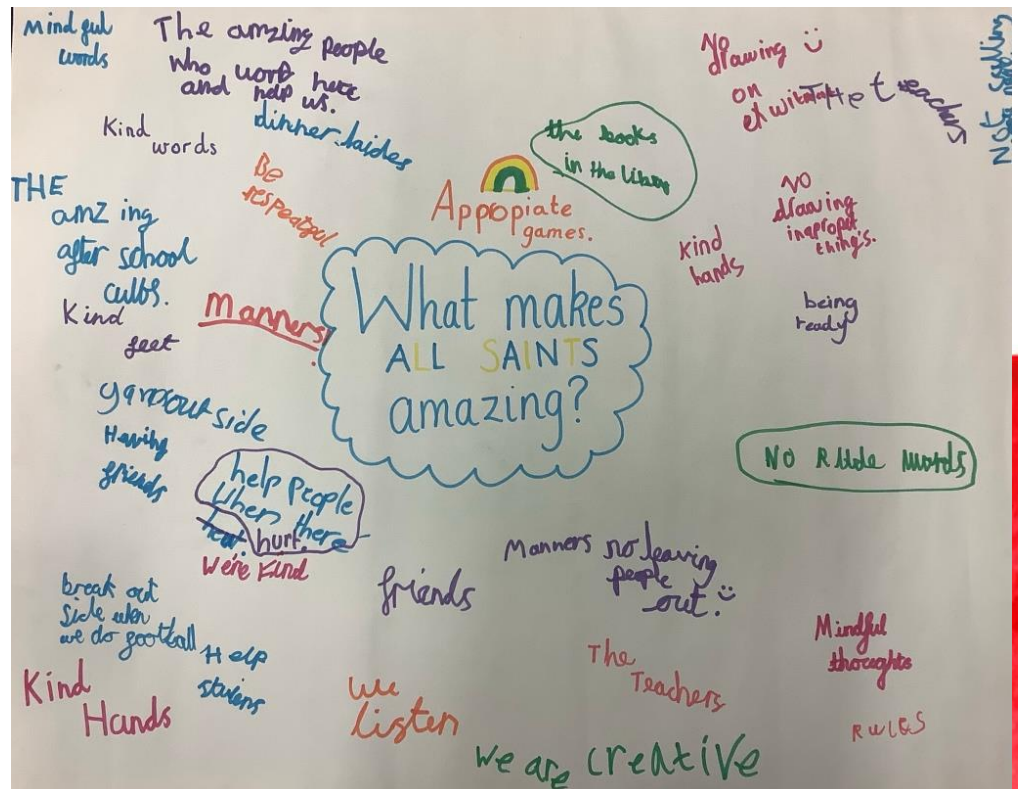 Mindful
words
The amzing people
who work here
and help us.
dinner laides
Kind
words
Be
respeatful
THE
amzing
after school
culbs.
Kind
feet
Manners!
Appropiate
games.
the books
in the library
No
drawing
on
THet teachers
Not
NO
drawing
inapropet
thing's.
kind
hands
being
ready
What makes
ALL SAINTS
amazing?
outside
Having
friends
help people
when there
hurt.
We're Kind
NO RUde words
Manners no leaving
people
out!
friends
break out
side wen
we do football
Help
Kind
Hands
we
listen
The
Teachers
Mindful
thoughts
RULES
we are creative